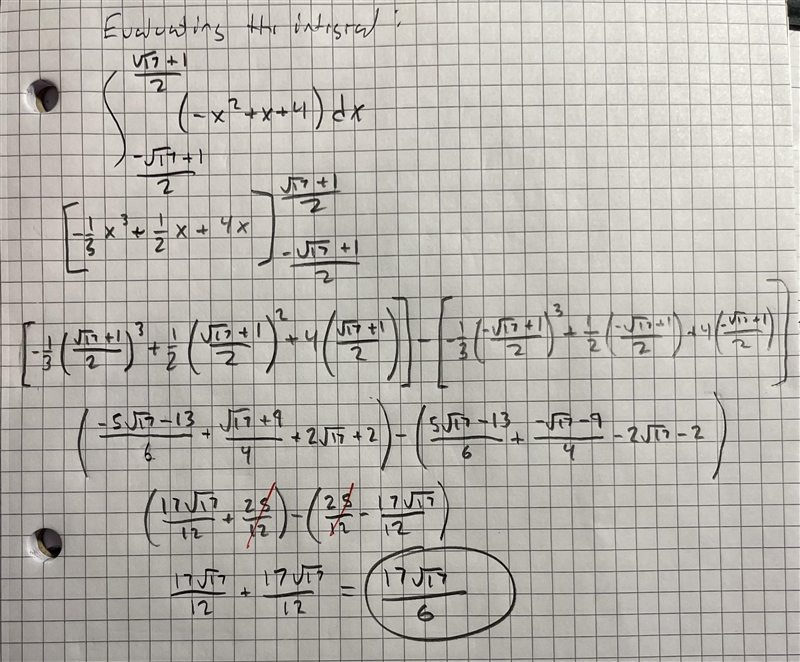 Evaluating the integral:
∫_{(-√17+1)/2}^{(√17+1)/2} (-x² + x + 4) dx
[-1/3 x³ + 1/2 x + 4x]_{(-√17+1)/2}^{(√17+1)/2}
[-1/3 ((√17+1)/2)³ + 1/2 ((√17+1)/2)² + 4((√17+1)/2)] - [-1/3 ((-√17+1)/2)³ + 1/2 ((-√17+1)/2) + 4((-√17+1)/2)]
((-5√17-13)/6 + (√17+9)/4 + 2√17 + 2) - ((5√17-13)/6 + (-√17-9)/4 - 2√17 - 2)
(17√17/12 + 28/12) - (28/12 - 17√17/12)
17√17/12 + 17√17/12 = 17√17/6